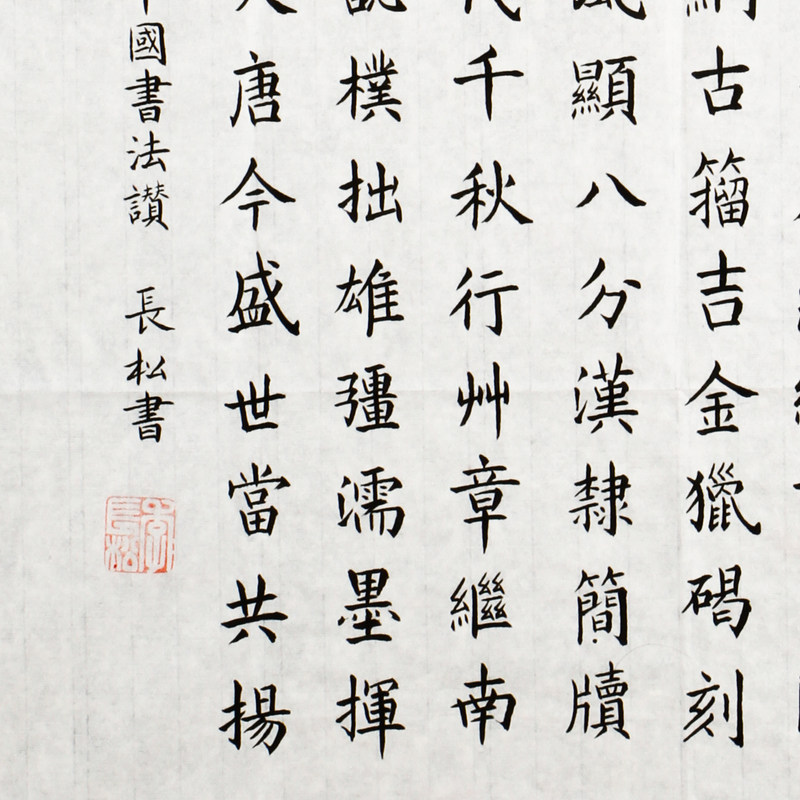 古籀吉金獵碣刻
顯八分漢隸簡牘
千秋行艸章繼南
樸拙雄彊濡墨揮
唐今盛世當共揚
國書法讃 長松書